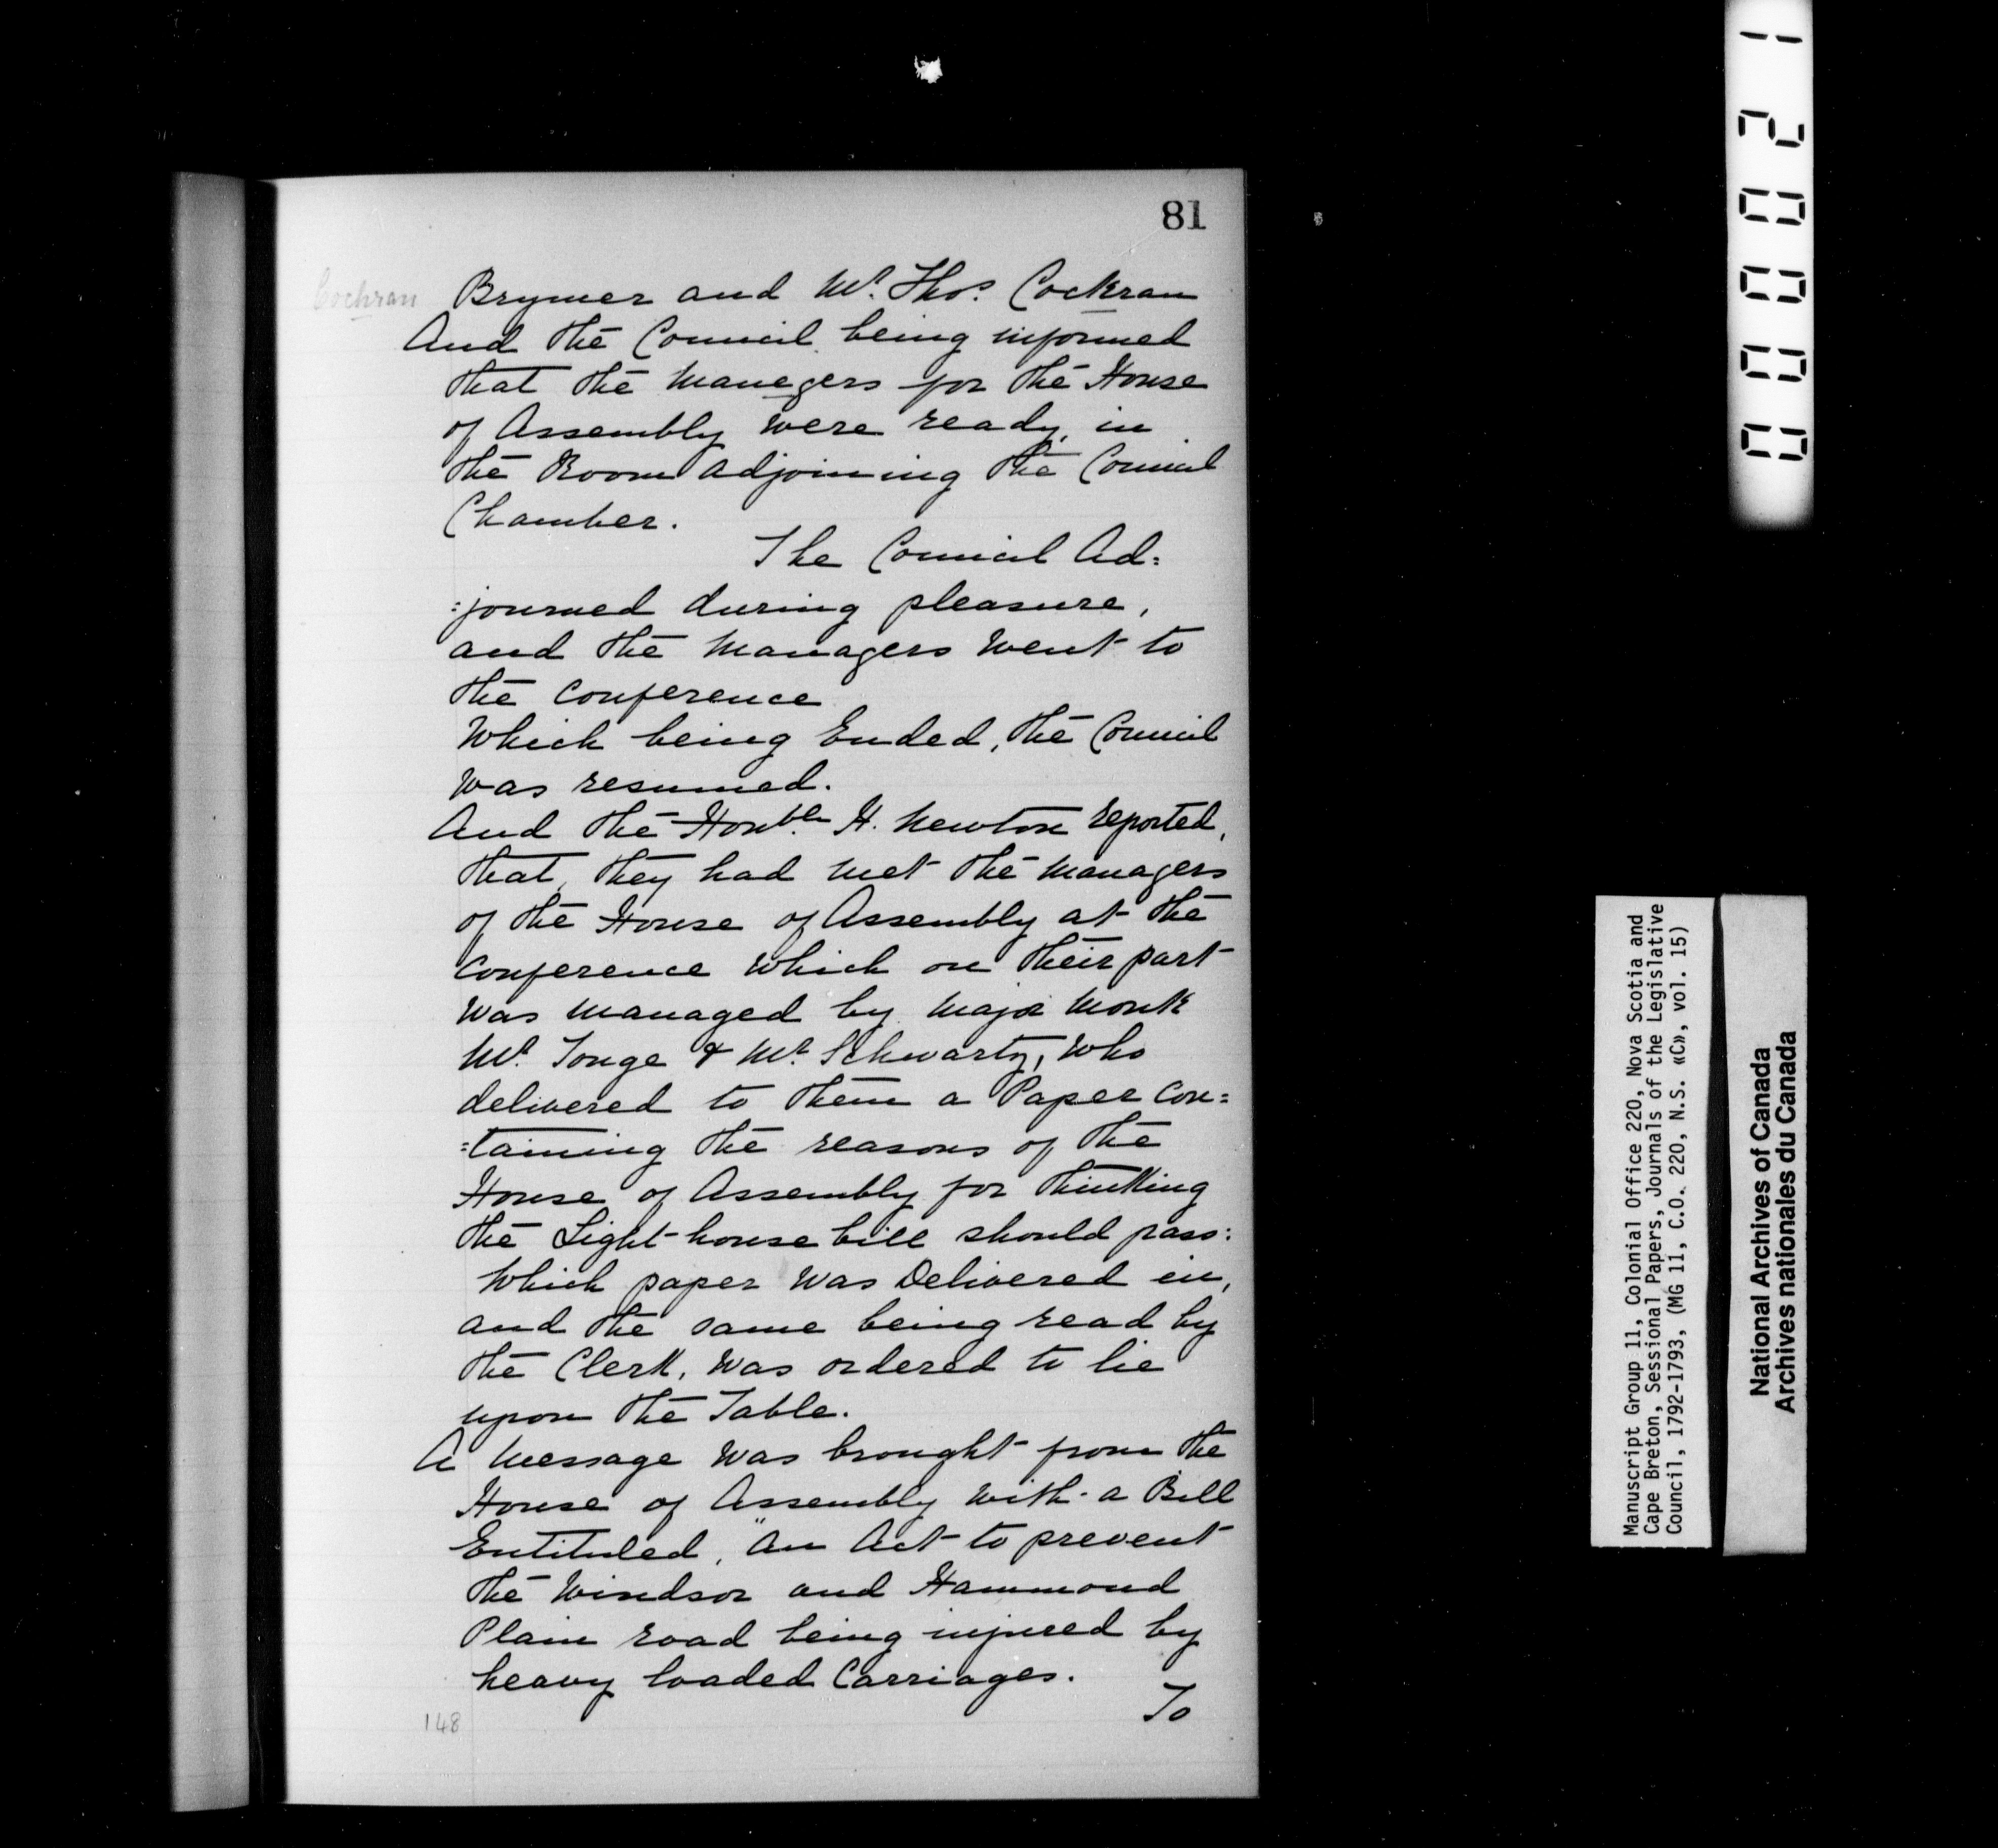 81
Cochran
Brymer and Mr. Thos. Cockran
And the Council being informed
that the Manegers for the House
of Assembly were ready, in
the Room adjoining the Council
Chamber.
The Council Ad=
=journed during pleasure,
and the Managers went to
the Conference
Which being Ended, the Council
was resumed.
And the Honble. H. Newton reported,
that, they had met the Managers
of the House of Assembly at the
Conference which on their part
was managed by Major Monk
Mr. Tonge & Mr. Schwartz, who
delivered to them a Paper Con=
=taining the reasons of the
House of Assembly for thinking
the Light-house bill should pass:
Which paper was Delivered in,
and the same being read by
the Clerk, was ordered to lie
upon the Table.
A Message was brought from the
House of Assembly with a Bill
Entituled, "An Act to prevent
the Windsor and Hammond
Plain road being injured by
heavy loaded Carriages.
To
148
000021
Manuscript Group 11, Colonial Office 220, Nova Scotia and
Cape Breton, Sessional Papers, Journals of the Legislative
Council, 1792-1793, (MG 11, C.O. 220, N.S. «C», vol. 15)
National Archives of Canada
Archives nationales du Canada